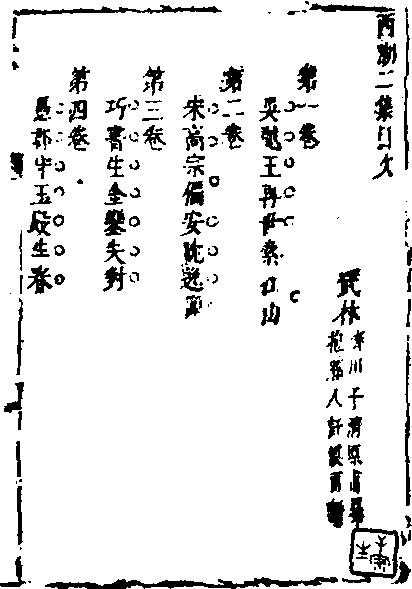 西湖二集目次
武林
濟川子清原甫纂
抱膝人訏謨甫評
第一卷
吳越王再世索江山
第二卷
宋高宗偏安耽逸豫
第三卷
巧書生金鑾失對
第四卷
愚郡守玉殿生春